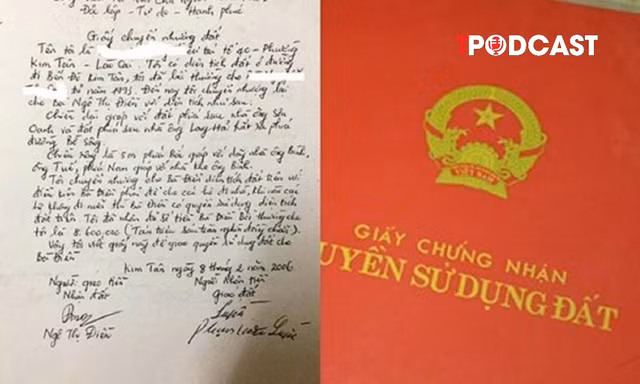 Độc lập - Tự do - Hạnh phúc
Giấy chuyển nhượng đất
Tên tôi là cư tại tổ 40 - Phường
Kim Tân - Lào Cai. Tôi có diện tích đất ở đường
đi Bến Đá Kim Tân, tôi đã bồi thường cho
từ năm 1993. Đến nay tôi chuyển nhượng lại
cho bà Ngô Thị Điền với diện tích như sau.
Chiều dài giáp với đất phía sau nhà ông Sển
Oanh và đất phía sau nhà ông Long Hà ra phía
đường Bờ sông
Chiều rộng là 5m phía Bắc giáp với dãy nhà ông Bình,
ông Tuế, phía Nam giáp với nhà ông Bình.
Tôi chuyển nhượng cho Bà Điền diện tích đất trên với
điều kiện Bà Điền phải để cho các hộ đi nhờ, khi nào các
hộ không đi nữa thì Bà Điền có quyền sử dụng diện tích
đất trên. Tôi đã nhận đủ số tiền Bà Điền Bồi thường cho
tôi là 8.600.000 (Tám triệu sáu trăm nghìn đồng chẵn).
Vậy tôi viết giấy này để giao quyền sử dụng đất cho
Bà Điền
Kim Tân ngày 8 tháng 2 năm 2006
Người giao tiền Người Nhận tiền
Nhận đất Giao đất
Ngô Thị Điền
PODCAST
VIỆT NAM
GIẤY CHỨNG NHẬN
UYỀN SỬ DỤNG ĐẤT